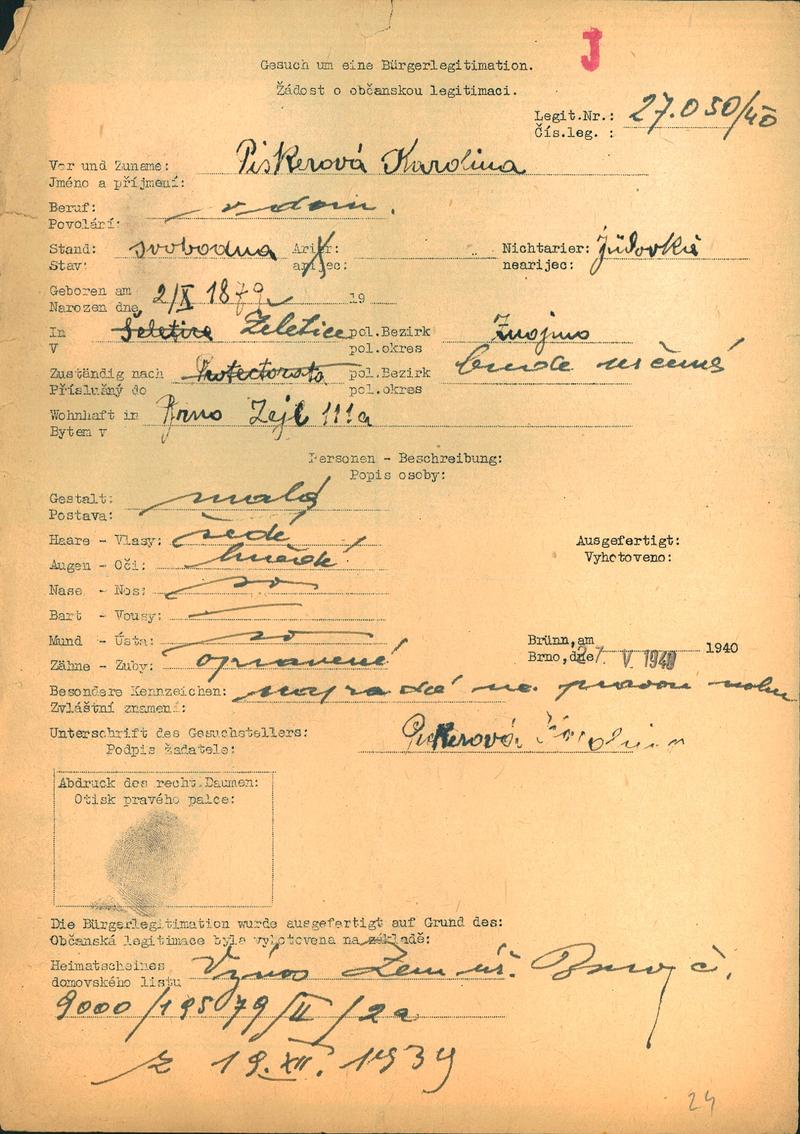 J
Gesuch um eine Bürgerlegitimation.
Žádost o občanskou legitimaci.
Legit.Nr.: 27.050/40
Čís.leg. :
Vor und Zuname: Piskerová Karolina
Jméno a příjmení:
Beruf: v dom.
Povolání:
Stand: svobodna Arier: Nichtarier: Júdovka
Stav: arijec: nearijec:
Geboren am 2/X 1879 19
Narozen dne
In Šeletice Želetice pol.Bezirk Znojmo
V pol.okres
Zuständig nach Protectorata pol.Bezirk bude určená
Příslušný do pol.okres
Wohnhaft in Brno Zejl 111a
Bytem v
Personen - Beschreibung:
Popis osoby:
Gestalt: malá
Postava:
Haare - Vlasy: šedé
Augen - Oči: hnědé
Ausgefertigt:
Vyhotoveno:
Nase - Nos:
Bart - Vousy:
Mund - Ústa:
Zähne - Zuby: opravené
Brünn, am 1940
Brno, dne 27. V. 1940
Besondere Kennzeichen: na pravou nohu
Zvláštní znamení:
Unterschrift des Gesuchstellers: Piskerová Karolina
Podpis žadatele:
Abdruck des recht.Daumen:
Otisk pravého palce:
Die Bürgerlegitimation wurde ausgefertigt auf Grund des:
Občanská legitimace byla vyhotovena na základě:
Heimatscheines Výnos Zem úř. Brno č.
domovského listu
9000/19579/II/2a
z 19.XII.1939
24